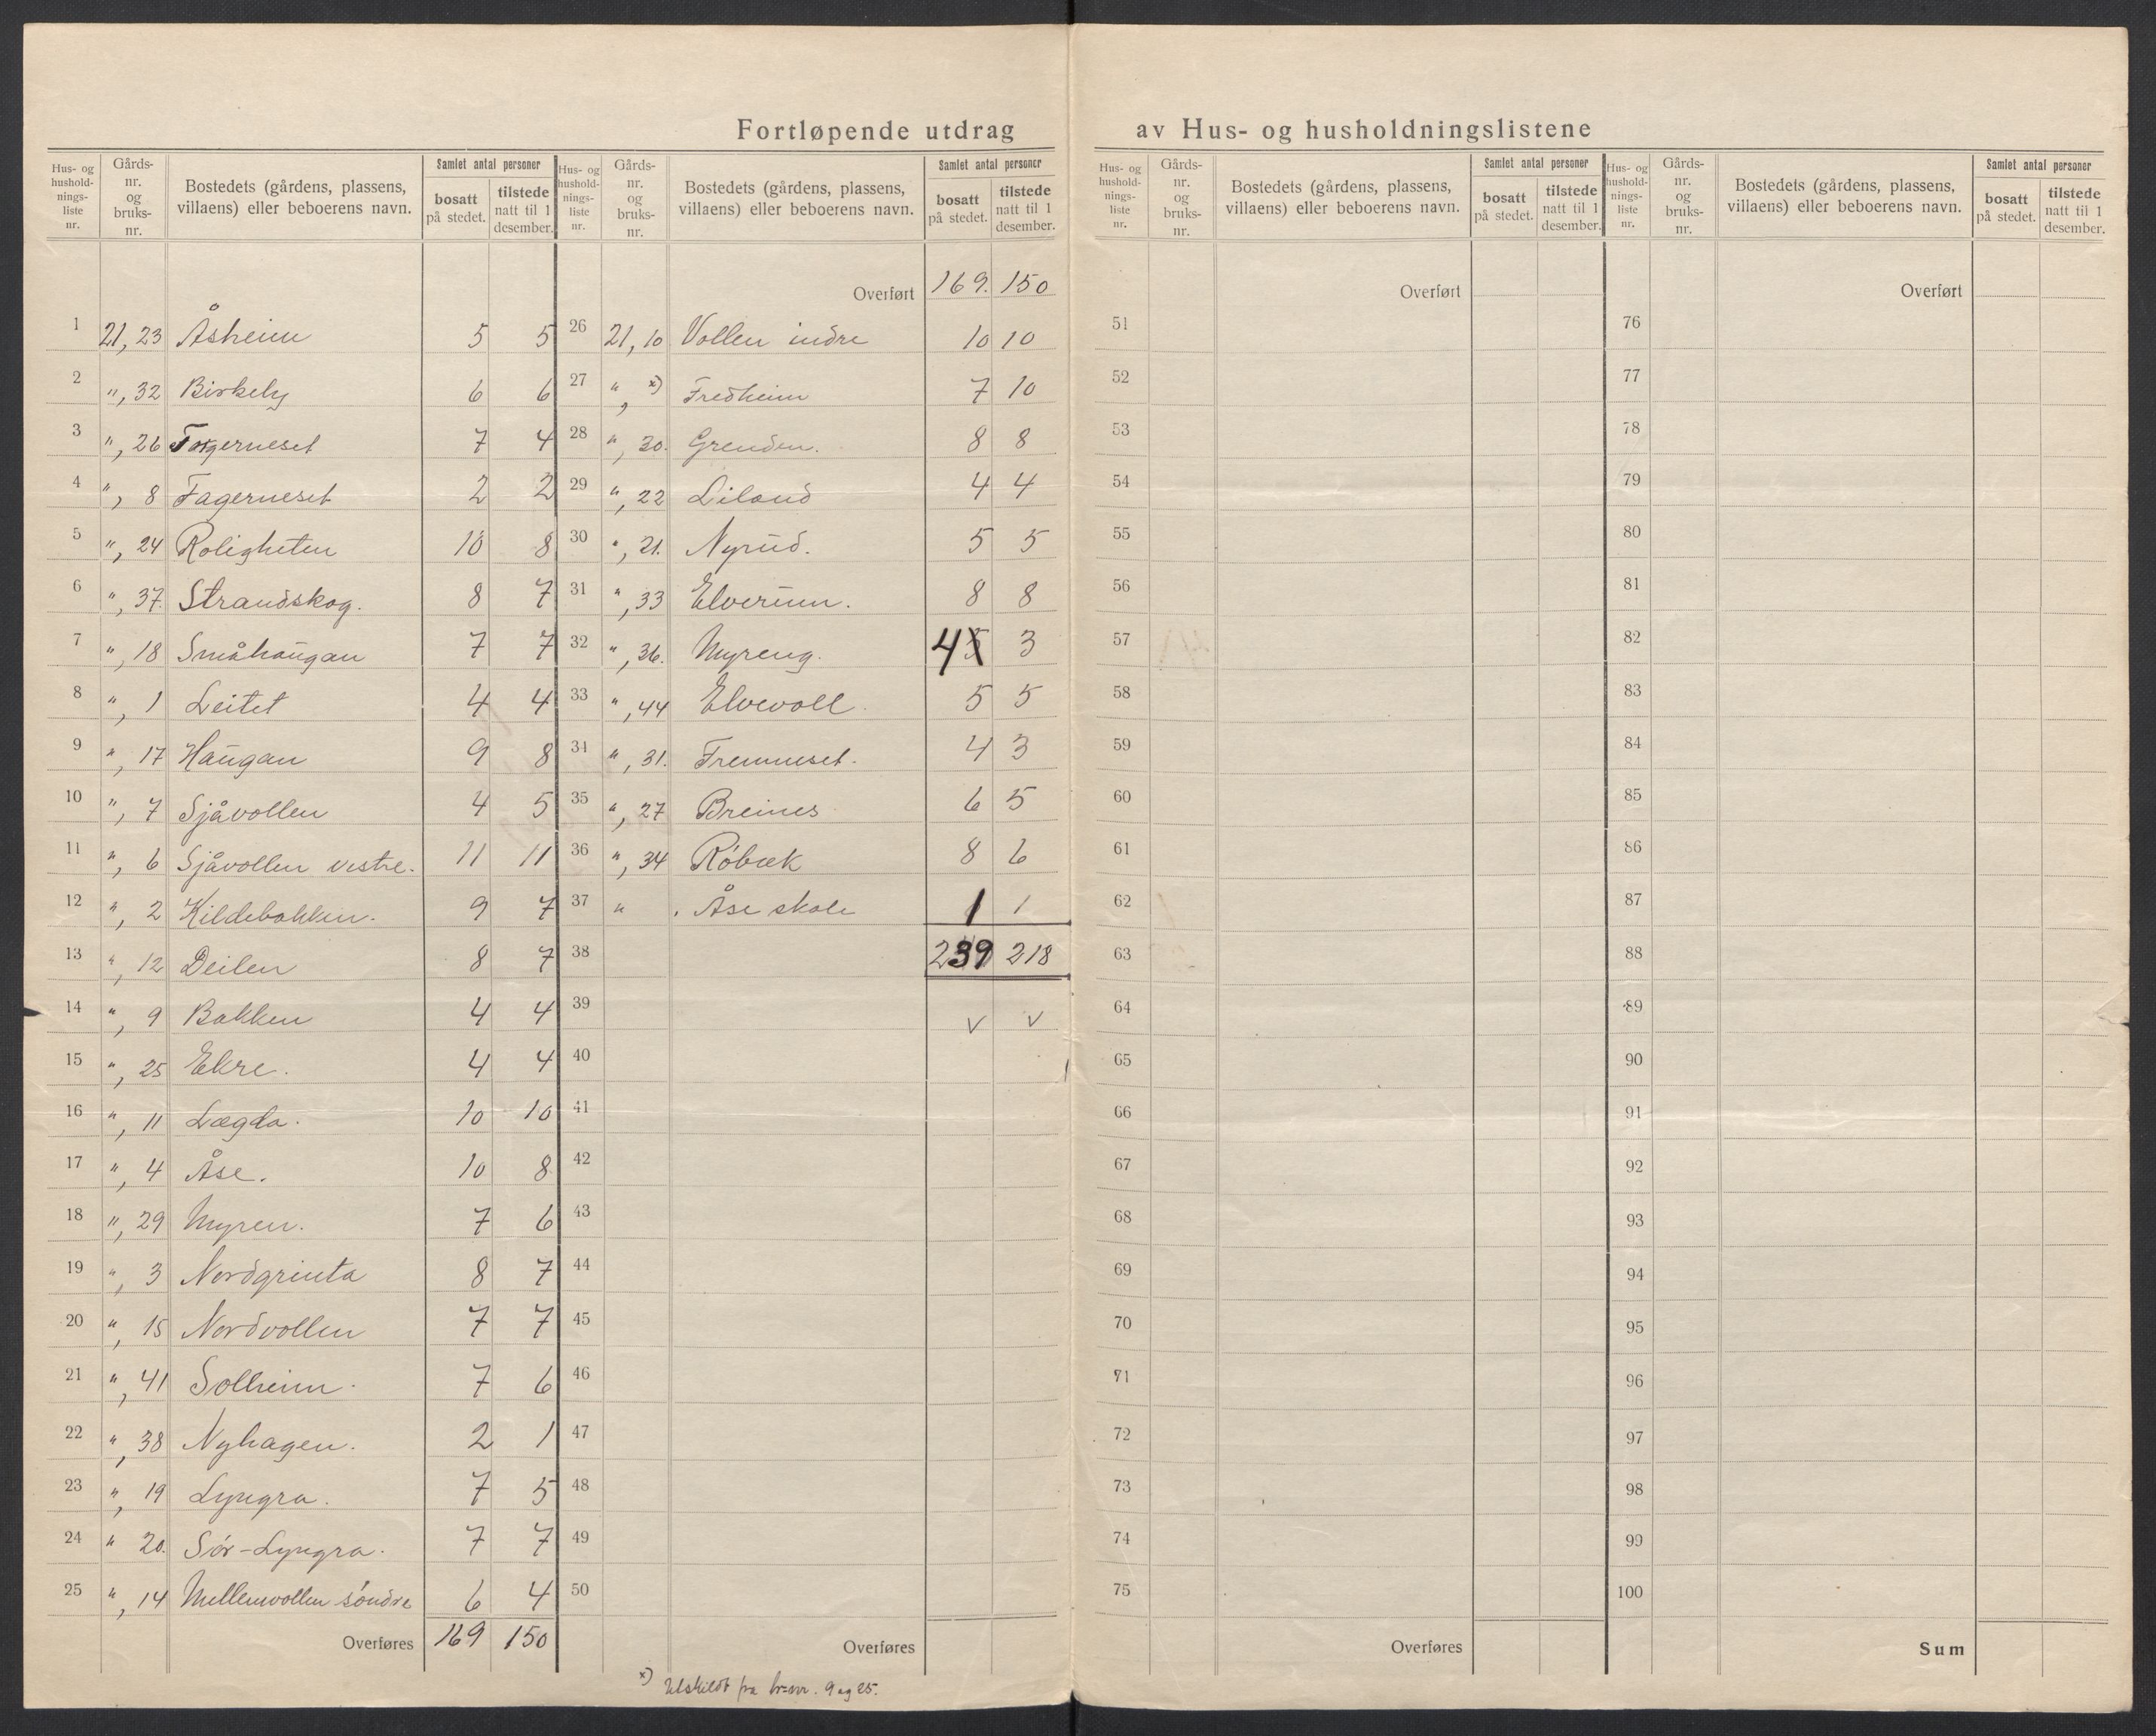 Fortløpende utdrag av Hus- og husholdningslistene
Hus- og husholdningsliste nr. | Gårds-nr. og bruks-nr. | Bostedets (gårdens, plassens, villaens) eller beboerens navn. | Samlet antal personer | bosatt på stedet. | tilstede natt til 1 desember.
1 21,23 Åsheim 5 5
2 ",32 Birkely 6 6
3 ",26 Fagerneset 7 4
4 ",8 Fagerneset 2 2
5 ",24 Roligheten 10 8
6 ",37. Strandskog. 8 7
7 ",18 Småhaugan 7 7
8 ",1 Leitet 4 4
9 ",17 Haugan 9 8
10 ",7 Sjåvollen 4 5
11 ",6 Sjåvollen vestre. 11 11
12 ",2 Kildebakken. 9 7
13 ",12 Deilen 8 7
14 ",9 Bakken 4 4
15 ",25 Ekre. 4 4
16 ",11 Lægda. 10 10
17 ",4 Åse. 10 8
18 ",29 Myren. 7 6
19 ",3 Nordgrinta 8 7
20 ",15 Nordvollen 7 7
21 ",41 Solheim. 7 6
22 ",38 Nyhagen. 2 1
23 ",19 Lyngra. 7 5
24 " 20. Sör-Lyngra. 7 7
25 ",14 Mellemvollen söndre 6 4
Overføres 169 150
Hus- og husholdningsliste nr. | Gårds-nr. og bruks-nr. | Bostedets (gårdens, plassens, villaens) eller beboerens navn. | Samlet antal personer | bosatt på stedet. | tilstede natt til 1 desember.
Overført 169. 150
26 21,10 Vollen indre 10 10
27 ", x) Fredheim 7 10
28 ",30. Grenden. 8 8
29 ",22 Liland 4 4
30 ",21. Nyrud. 5 5
31 ",33 Elverum. 8 8
32 ",36. Myreng. 4 5 3
33 ",44 Elvevoll. 5 5
34 ",31. Fremneset. 4 3
35 ",27 Breines 6 5
36 ",34 Röbæk 8 6
37 " . Åse skole 1 1
38 239 218
39 v v
40
41
42
43
44
45
46
47
48
49
50
Overføres
x) Utskildt fra br.nr. 9 og 25.
Hus- og husholdningsliste nr. | Gårds-nr. og bruks-nr. | Bostedets (gårdens, plassens, villaens) eller beboerens navn. | Samlet antal personer | bosatt på stedet. | tilstede natt til 1 desember.
Overført
51
52
53
54
55
56
57
58
59
60
61
62
63
64
65
66
67
68
69
70
71
72
73
74
75
Overføres
Hus- og husholdningsliste nr. | Gårds-nr. og bruks-nr. | Bostedets (gårdens, plassens, villaens) eller beboerens navn. | Samlet antal personer | bosatt på stedet. | tilstede natt til 1 desember.
Overført
76
77
78
79
80
81
82
83
84
85
86
87
88
89
90
91
92
93
94
95
96
97
98
99
100
Sum